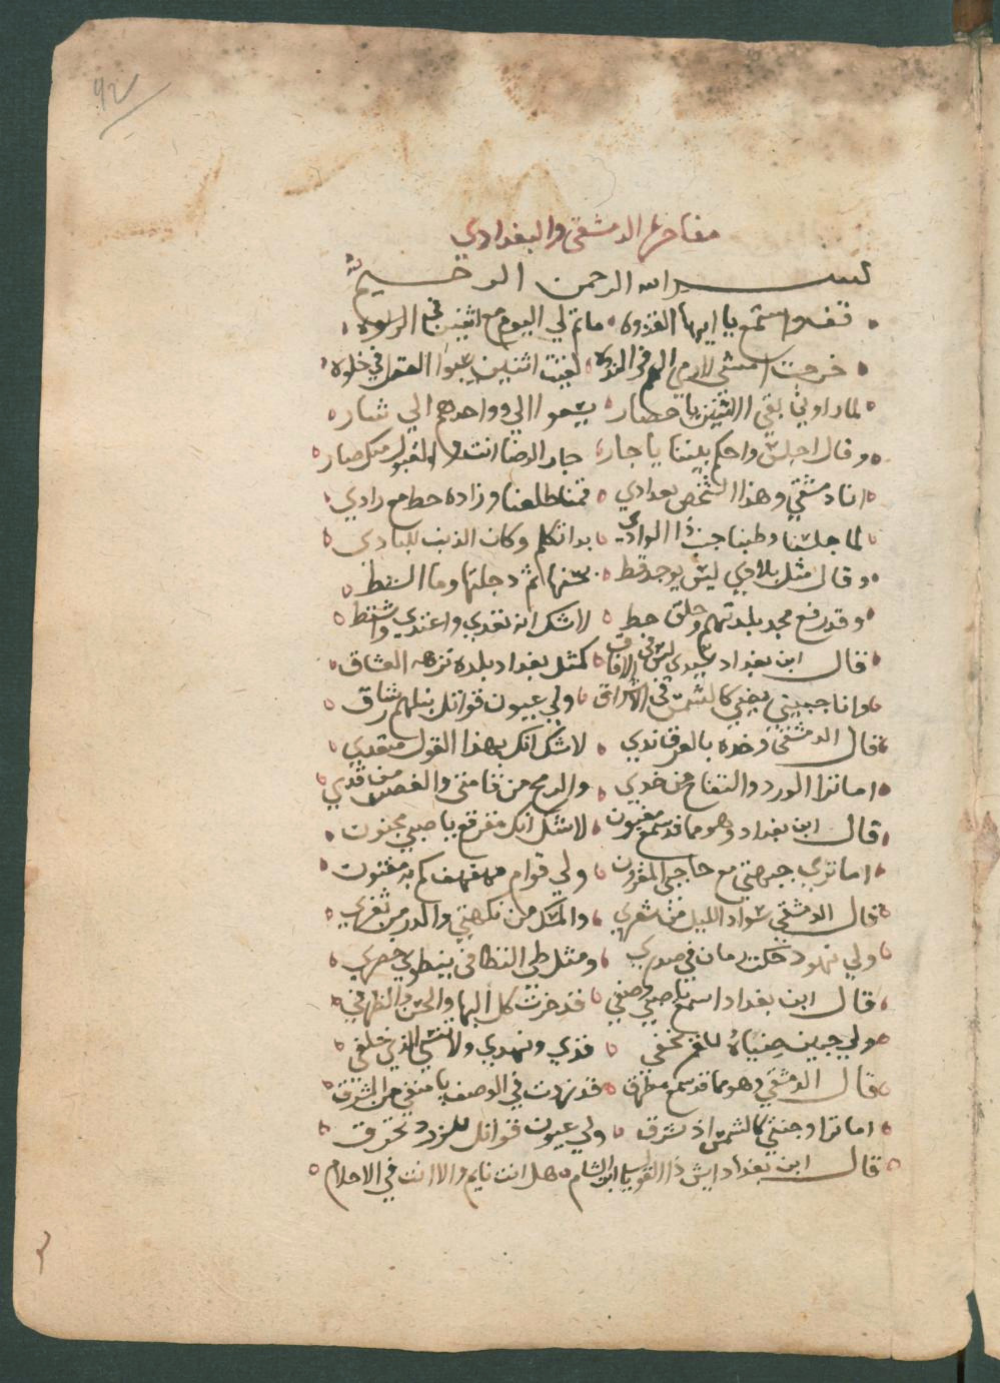 ٩٢
مفاخرة الدمشقي والبغدادي
بسم الله الرحمن الرحيم
قف واستمع يا ايها القدوه ما تم لي اليوم مع اثنين في الربوه
خرجت اتمشي لارمي الهم في النزه لقيت اثنين يسبوا العقل في خلوه
لما راوني بقي الاثنين يا حضار يسعوا الي وواحدهم الي شار
وقال اجلس واحكم بيننا يا جار جار الرضا انت والمقبول منك صار
انا دمشقي وهذا الشخص بغدادي قمنا طلعنا وزاده حط مع زادي
لما جلسنا وطبنا جنب ذا الوادي بدا تكلم وكان الذنب للبادي
وقال مثل بلادي ليس يوجد قط بحسنها ثم دجلتها وما الشط
وقد رفع مجد بلدتهم وجلق حط لاشك انه تعدي واعتدي واشتط
قال ابن بغداد سيدي ليس في الافاق كمثل بغداد بلده نزهه العشاق
وانا جبيني يضي كالشمس في الاشراق ولي عيون قواتل بنبلهم رشاق
قال الدمشقي وخده بالعرق ندي لاشك انك بهذا القول متعدي
اما ترا الورد والتفاح من خدي والرمح من قامتي والغصن من قدي
قال ابن بغداد وهو مما قد سمع مغبون لاشك انك مفرقع يا صبي مجنون
اما تري جبهتي مع حاجبي المقرون ولي قوام مهفهف كم به مفتون
قال الدمشقي سواد الليل من شعري والمسك من نكهتي والدر من ثغري
ولي نهود حكت رمان في صدري ومثل طي النطاق ينطوي خصري
قال ابن بغداد اسمع يا صبي وصفي قد حزت كل البها والحسن والظرفي
ولي جبين ضياه للقمر يخفي قدي ونهدي ولا تنسي الذي خلفي
قال الدمشقي وهو مما قد سمع مطرق قد زدت في الوصف يا
اما ترا وجنتي كالشمس اذ تشرق ولي عيون قواتل للزرد تخرق
قال ابن بغداد ايش ذا القول يا ابن الشام هل انت نايم والا انت في الاحلام